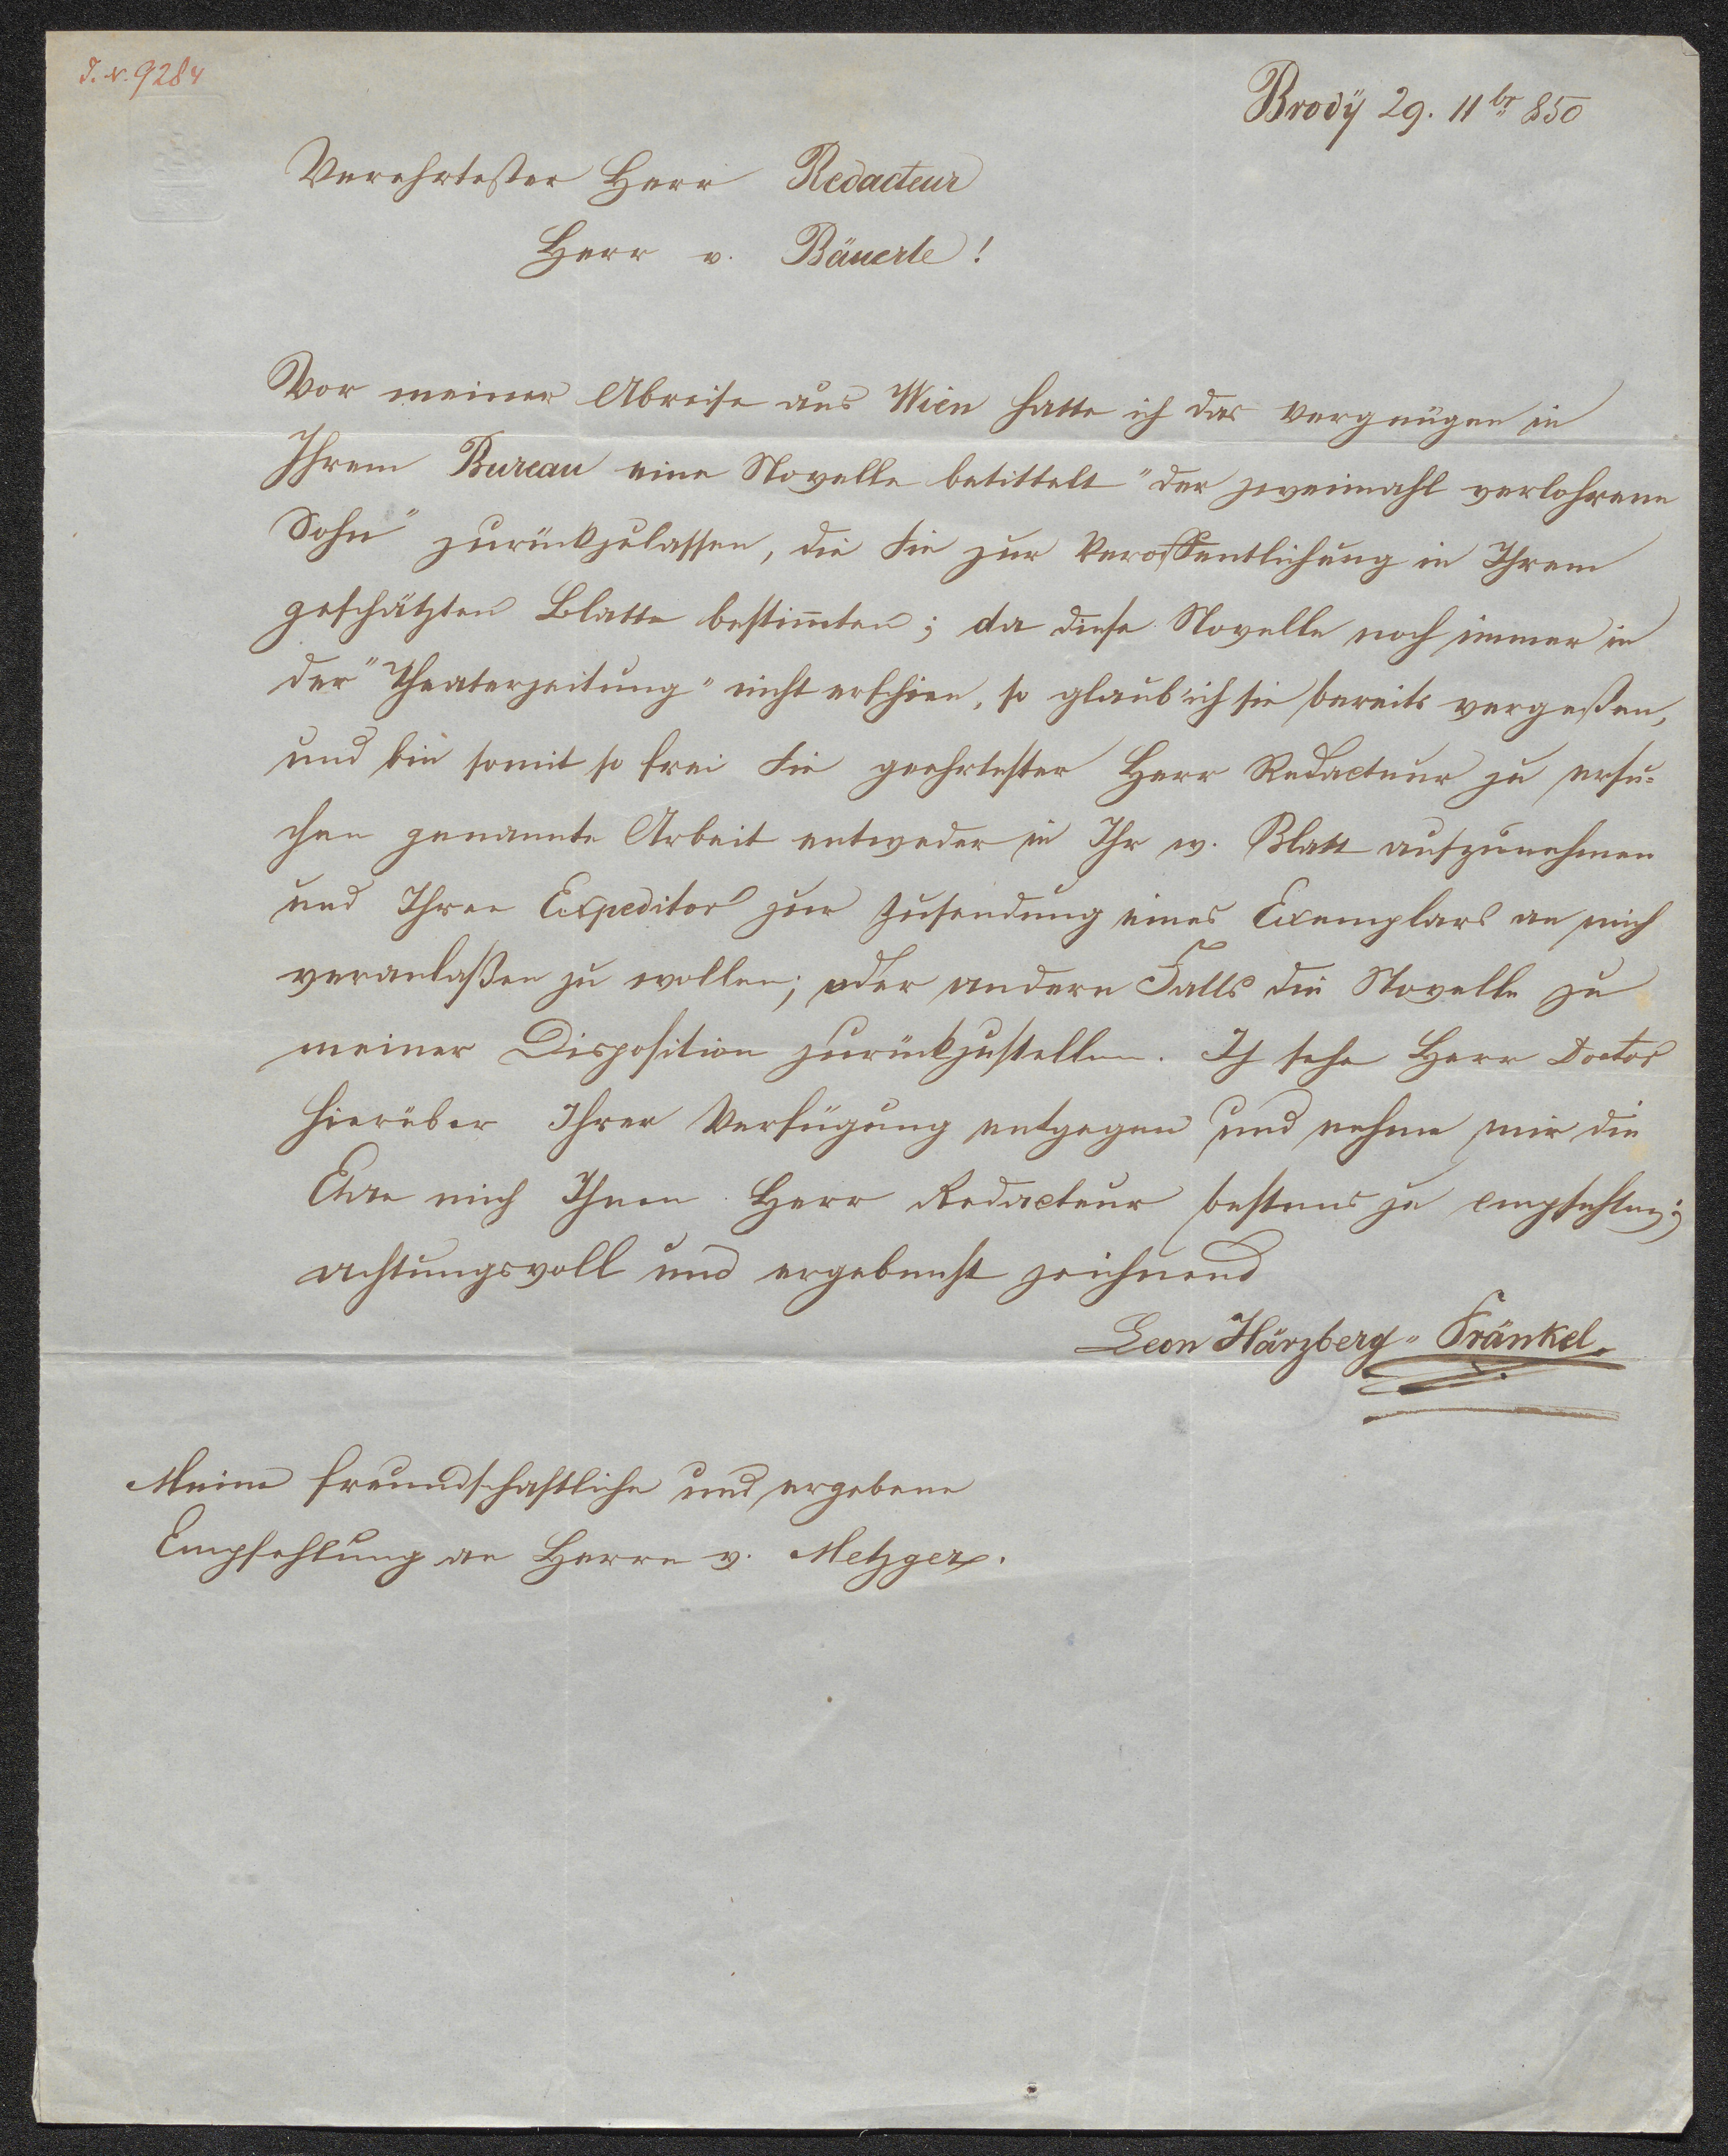 J. N. 9284
Brodÿ 29. 11br 850
Verehrtester Herr Redacteur
Herr v. Bäuerle!
Vor meiner Abreise aus Wien hatte ich das Vergnügen in
Ihrem Bureau eine Novelle betittelt "der zweimahl verlohrene
Sohn" zurückzulassen, die Sie zur Veroffentlichung in Ihrem
geschätzten Blatte bestim̄ten; da diese Novelle noch immer in
der "Theaterzeitung" nicht erschien, so glaub' ich sie bereits vergeßen,
und bin somit so frei Sie geehrtester Herr Redacteur zu ersu=
chen genannte Arbeit entweder in Ihr w. Blatt aufzunehmen
und Ihren Expeditor zur Zusendung eines Exemplars an mich
veranlaßen zu wollen; oder andern Falls die Novelle zu
meiner Disposition zurückzustellen. Ich sehe Herr Doctor
hierüber Ihrer Verfügung entgegen und nehme mir die
Ehre mich Ihnen Herr Redacteur bestens zu empfehlen;
achtungsvoll und ergebenst zeichnend
Leon Härzberg-Fränkel.
Meine freundschaftliche und ergebene
Empfehlung an Herrn v. Metzger.